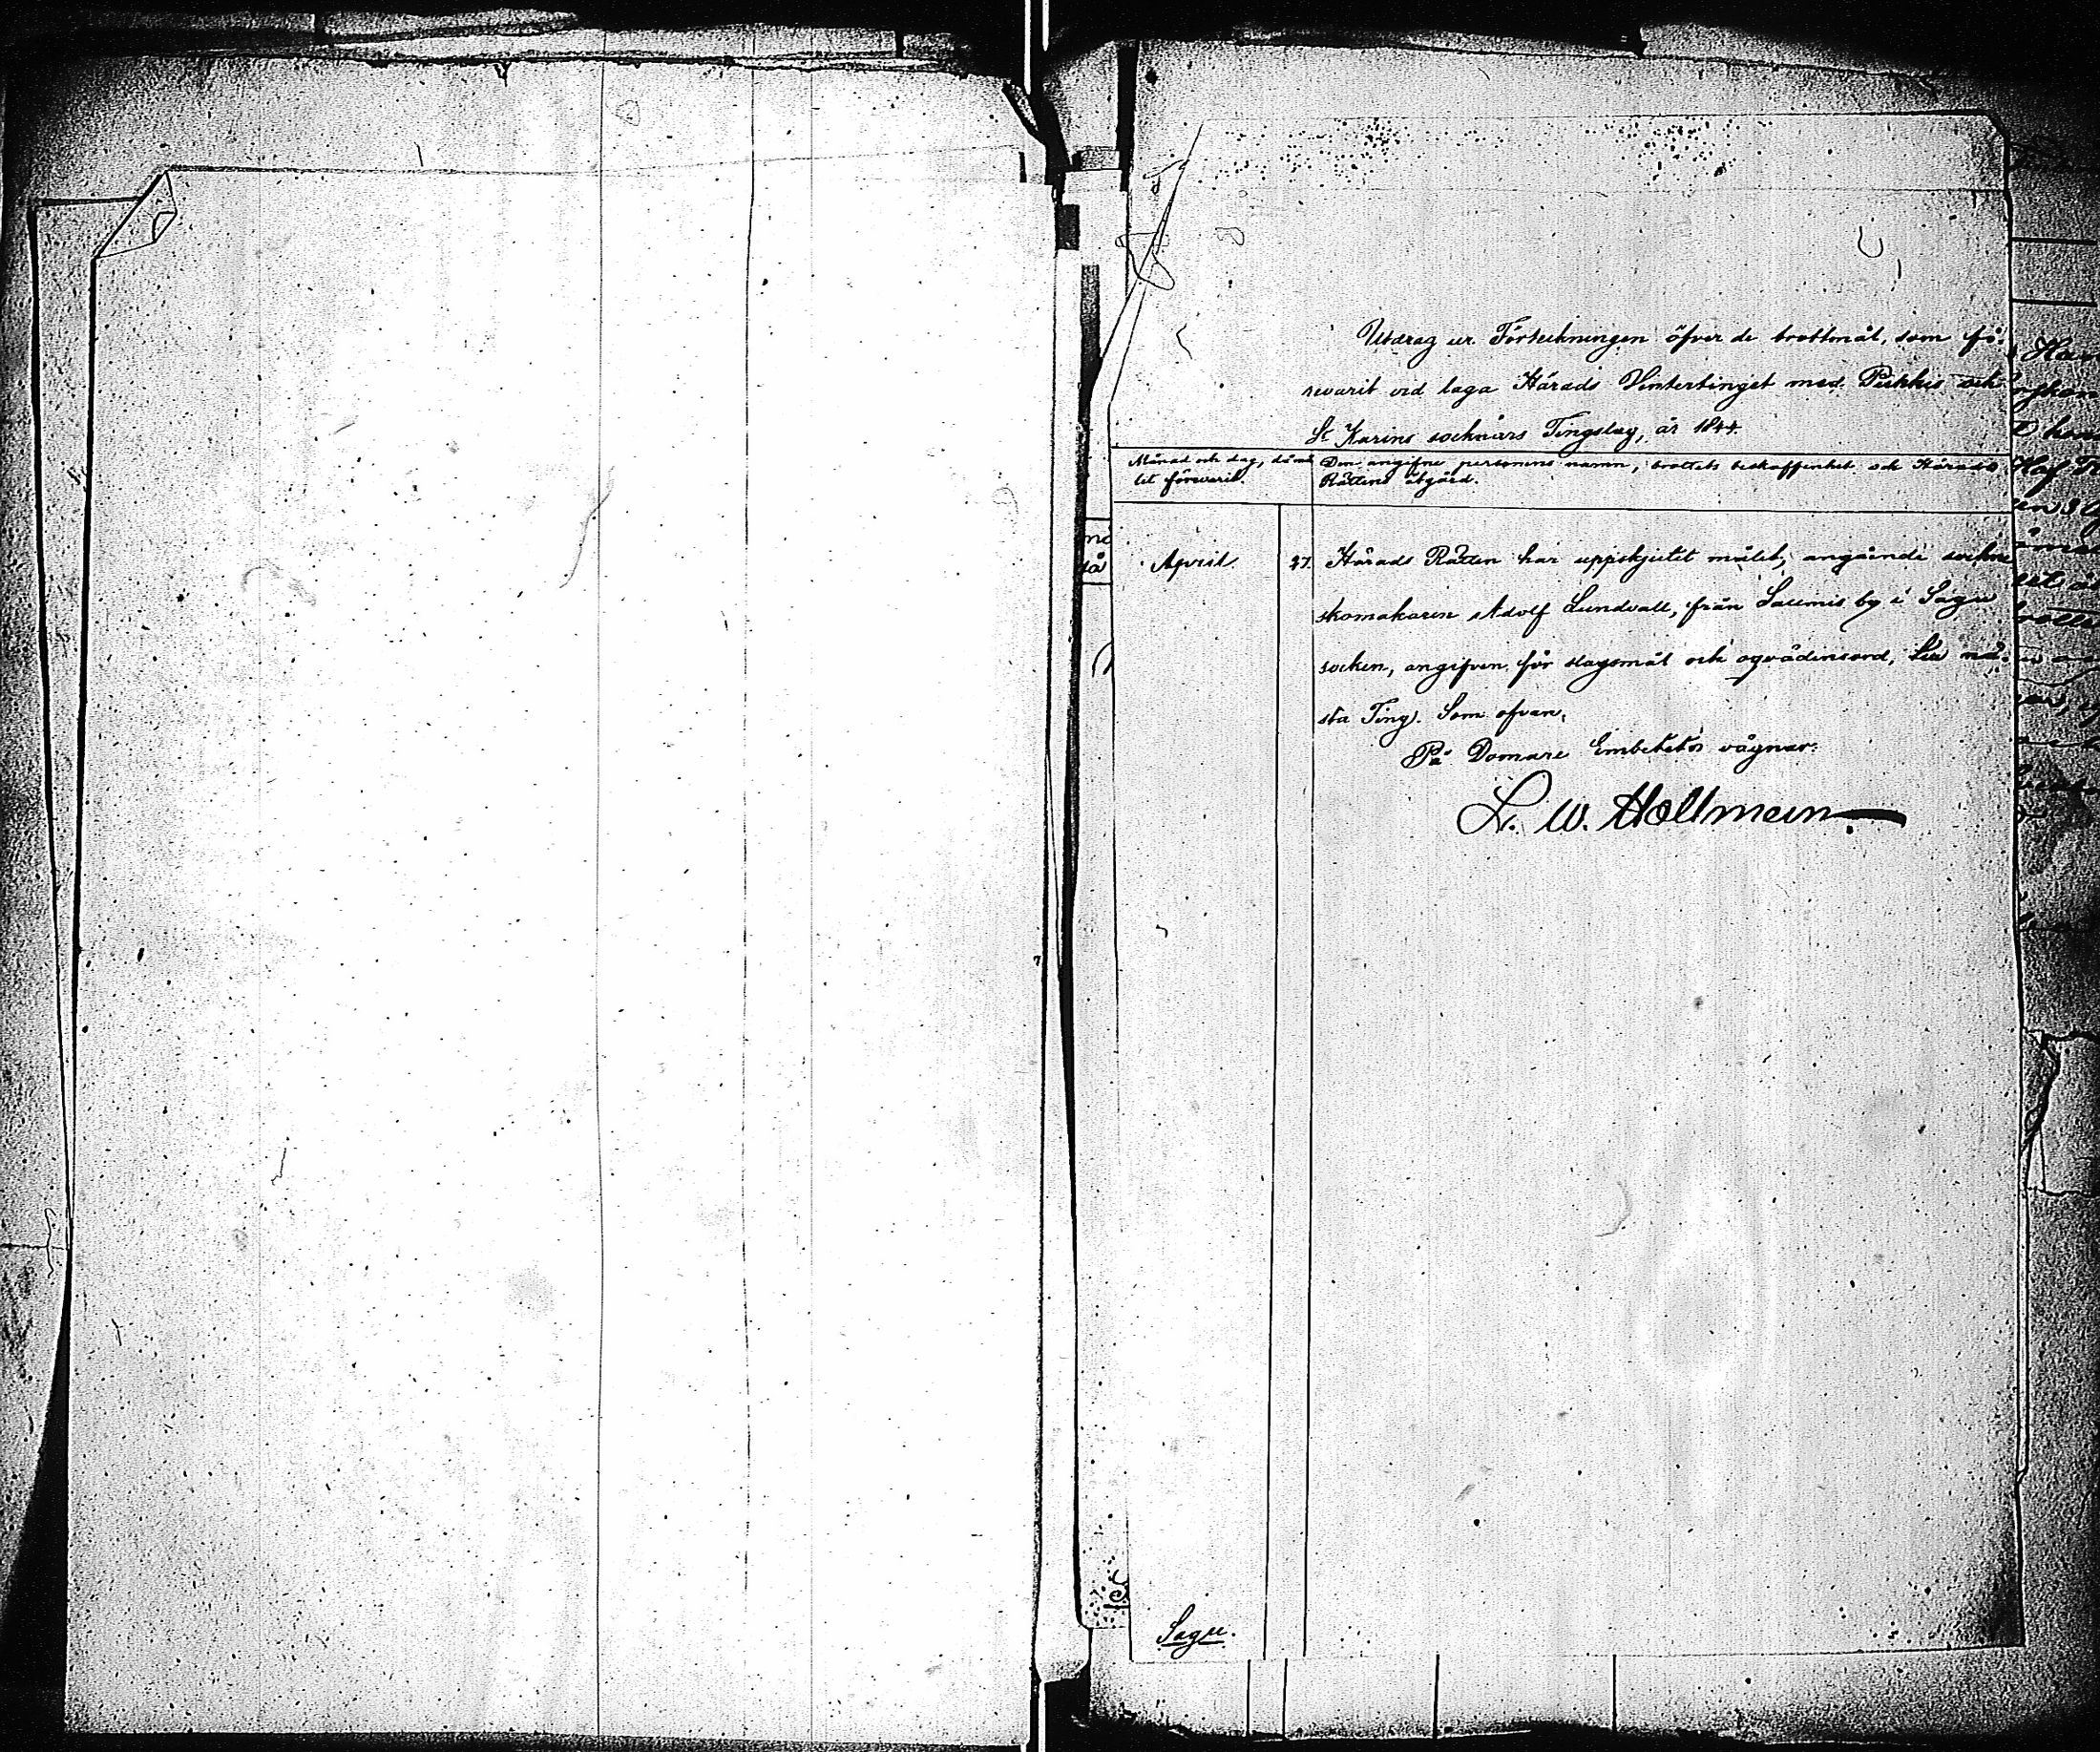 Utdrag ur Förteckningen öfver de brottmål, som fö-
revarit vid laga Härads Vintertinget med Pikkis och
S:t Karins socknars Tingslag, år 1844.
Månad och dag, då må-
let förevarit.
Den angifne personens namn, brottets beskaffenhet och Härads
Rättens åtgärd.
April. 27. Härads Rätten har uppskjutit målet, angående sockne
skomakaren Adolf Lundvall, från Saumis by i Sagu
socken, angifven för slagsmål och oqvädinsord, till nä-
sta Ting. Som ofvan,
På Domare Embetets vägnar:
L. W. Hollmén
Sagu.